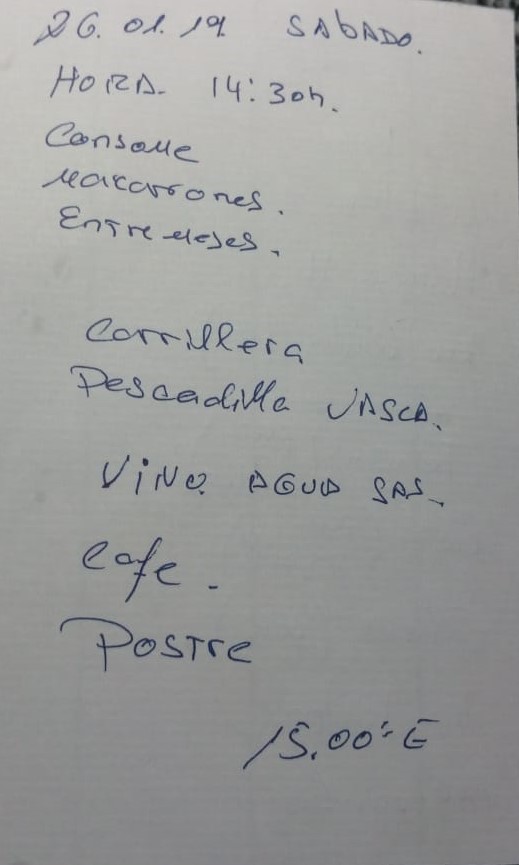 26.01.19 SAbADO.
HORA. 14:30h.
Consome
Macarrones.
Entremeses.
Carrillera
Pescadilla VASCA.
ViNO. AGUA GAS.
Cafe.
POSTRE
15.00'- E